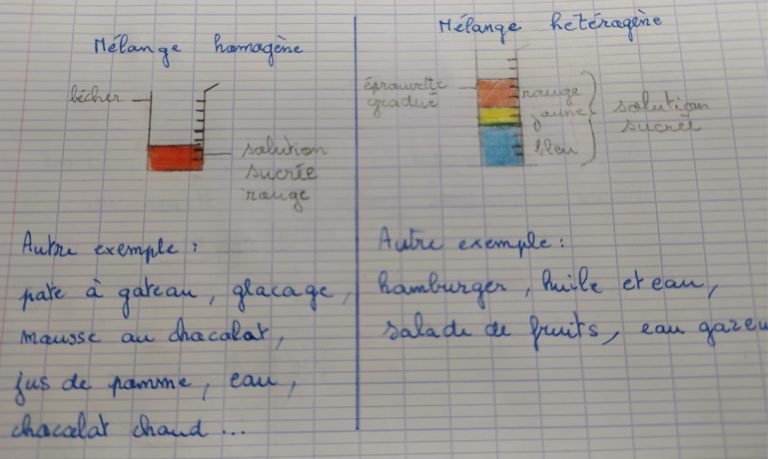 Mélange homogène
bécher
solution
sucrée
rouge
Autre exemple :
pate à gateau, glacage,
mousse au chocolat,
jus de pomme, eau,
chocolat chaud ...
Mélange hétérogène
éprouvette
gradué
rouge
jaune
bleu
solution
sucrée
Autre exemple :
hamburger, huile et eau,
salade de fruits, eau gazeu